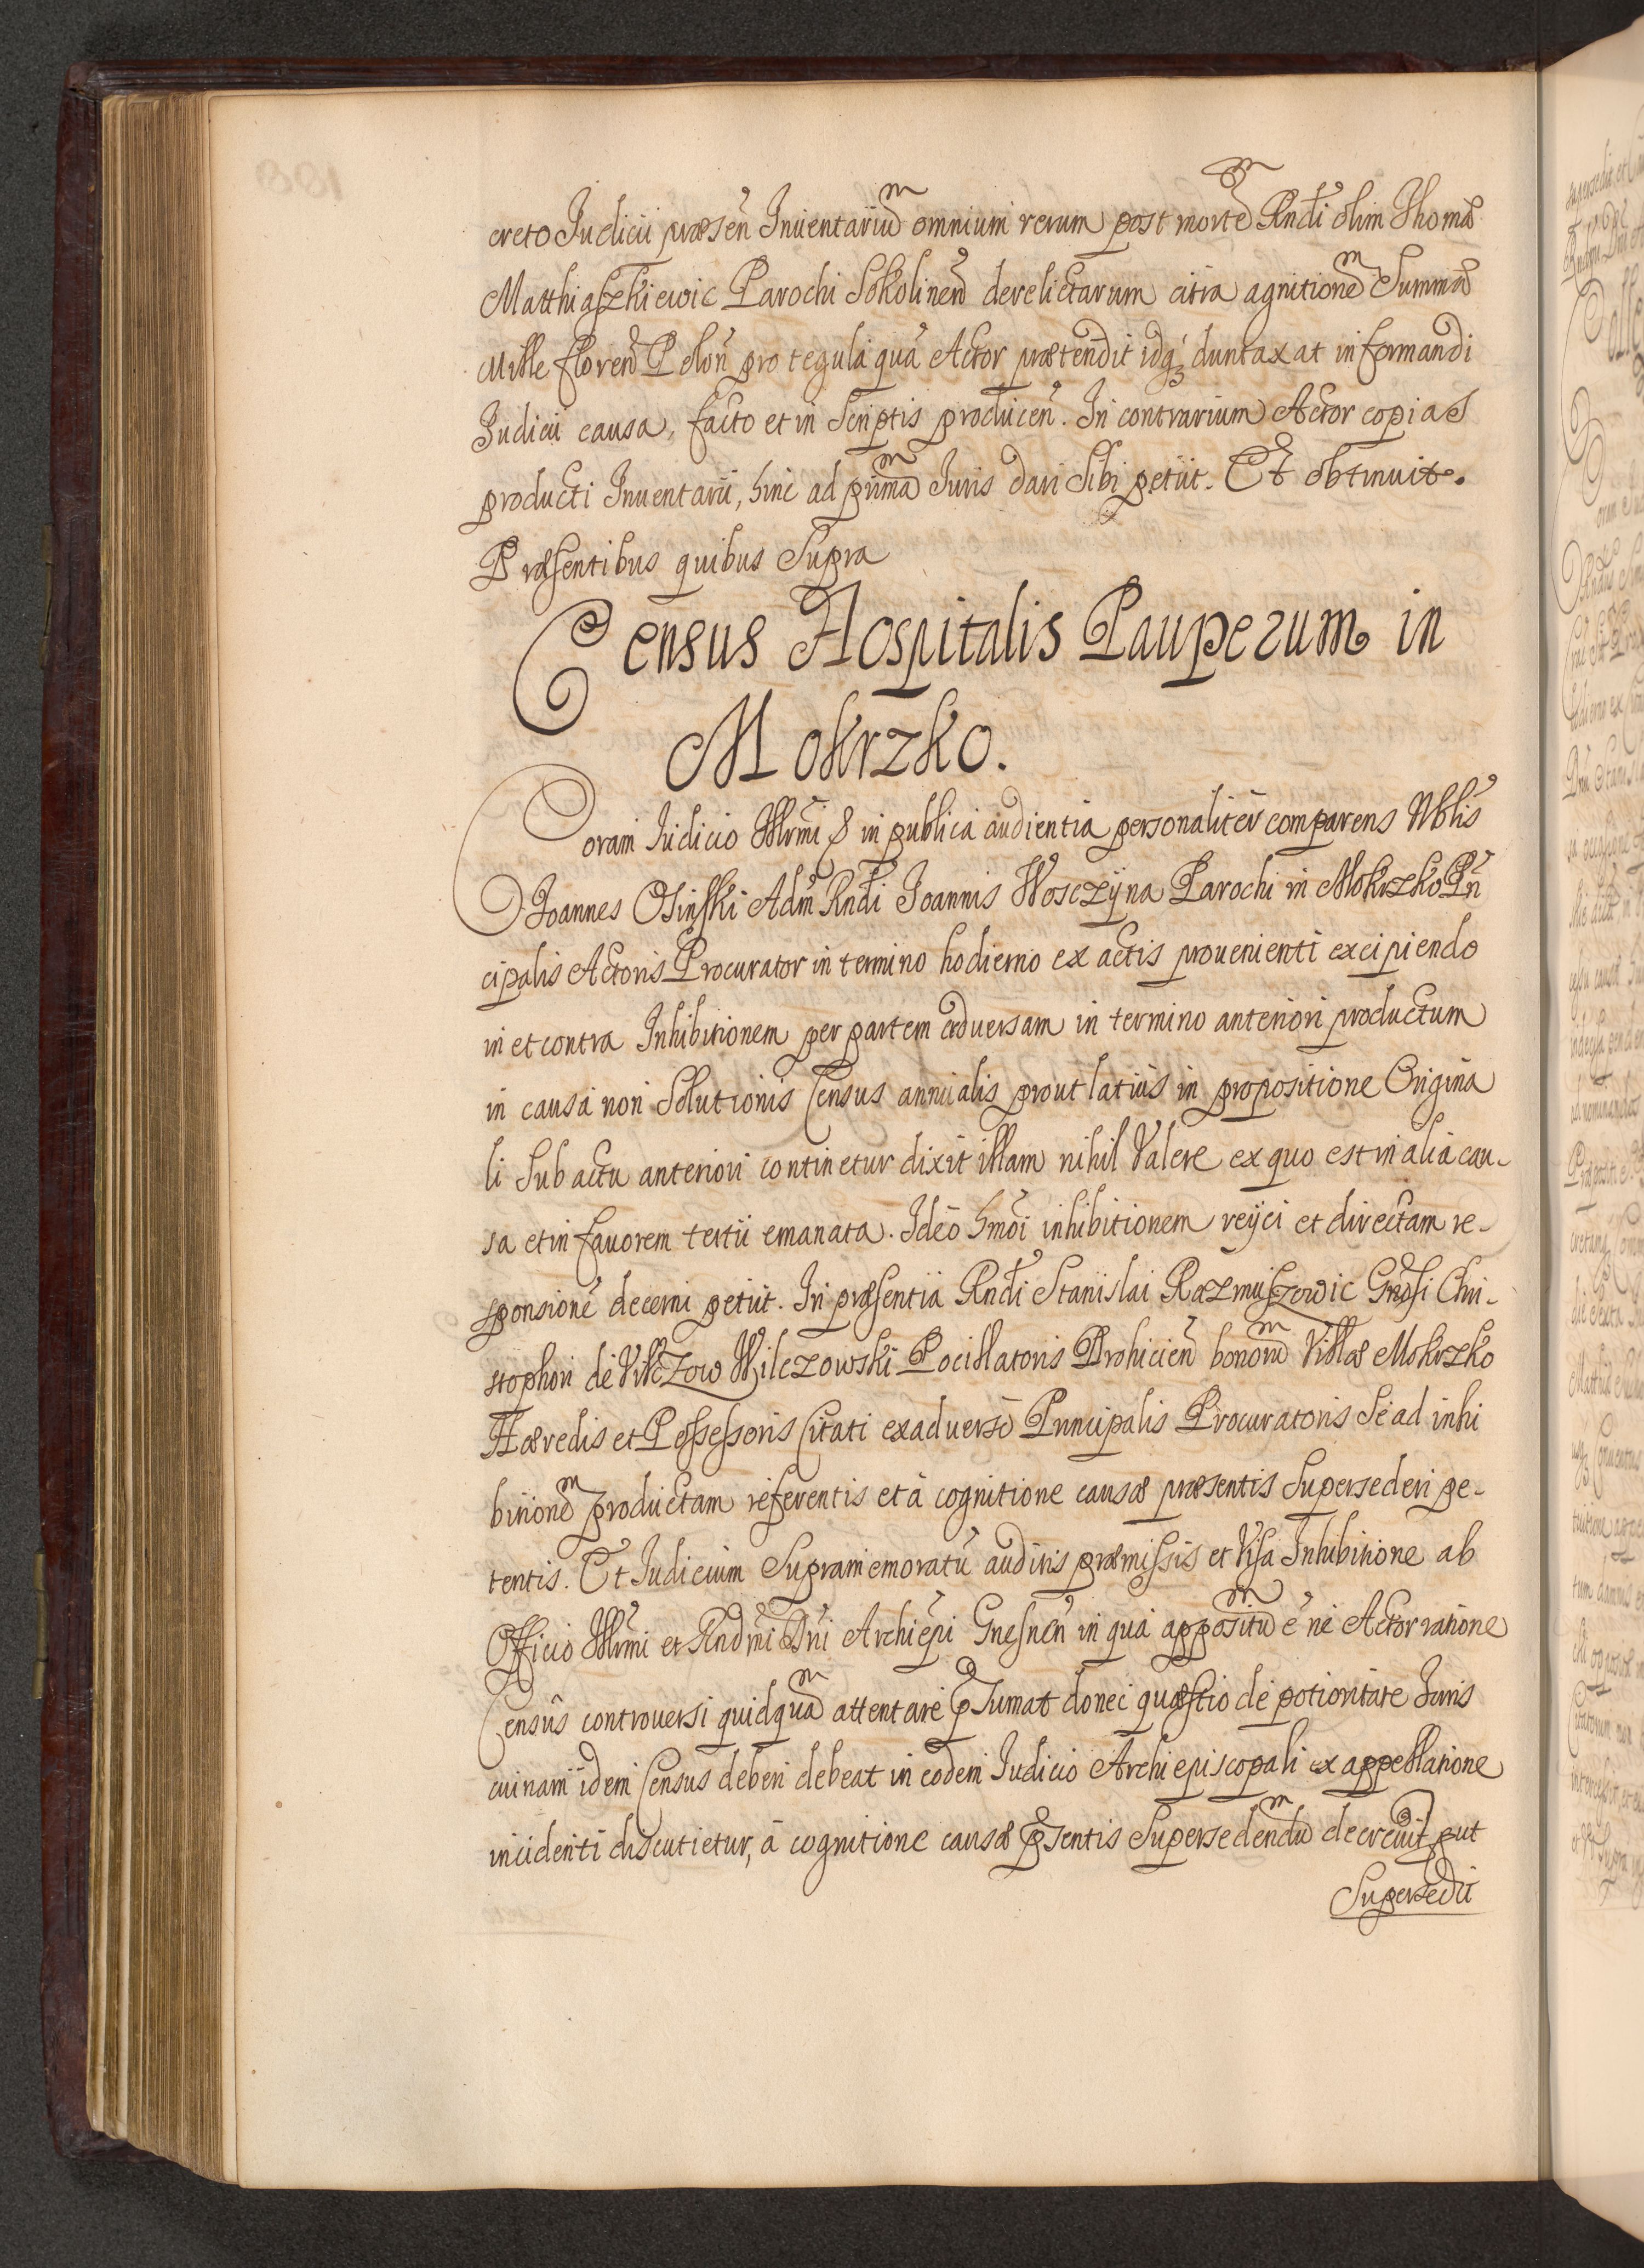 creto Judicii præsen̄ Inuentariu͞m omnium rerum post morte͞m Rnd̄i olim Thomæ
Matthiaszkiewic Parochi Sokolinen̄ derelictarum citra agnitione͞m Summæ
Mille floren̄ Polon̄ pro tegula quā Actor prætendit idq₃ duntaxat informandi
Judicii causa, facto et in Scriptis producen̄. In contrarium Actor copias
producti Inuentarii, hinc ad prima͞m Juris dari Sibi petiit. Et obtinuit.
Præsentibus quibus Supra
Census Hospitalis Pauperum in
Mokrzko.
Coram Iudicio Illrmi & in publica audientia personaliter comparens Nblis
Joannes Osinski Adm̄ Rnd̄i Joannis Wosczyna Parochi in Mokrzko Pn̄
cipalis Actoris Procurator in termino hodierno ex actis prouenienti excipiendo
in et contra Inhibitionem per partem aduersam in termino anteriori productum
in causa non Solutionis Census annualis prout latius in propositione Origina
li Sub actu anteriori continetur dixit illam nihil Valere ex quo est in alia cau-
sa et in fauorem tertii emanata. Ideo hmōi inhibitionem reijci et directam re-
sponsionē decerni petiit. In præsentia Rnd̄i Stanislai Razmuszowic Gnōsi Chri-
stophori de Vilczow Wilczowski Pocillatoris Drohicien̄ bonoru͞m Villæ Mokrzko
Hæredis et Possessoris Citati exaduerso Principalis Procuratoris Se ad inhi
bitione͞m productam referentis et à cognitione causæ præsentis Supersederi pe-
tentis. Et Judicium Supramemoratū auditis præmissis et Visa Inhibitione ab
Officio Illrmi et Rndmi Dn̄i Archiep̄i Gnesnen̄ in qua appositu͞m ē ne Actor ratione
Censûs controuersi quidqua͞m attentare p̄sumat donec quæstio de potioritate Juris
cuinam idem Census deberi debeat in eodem Judicio Archiepiscopali ex appellatione
incidenti discutietur, à cognitione causæ p̄sentis Supersedendu͞m decreuit, put
Supersedit